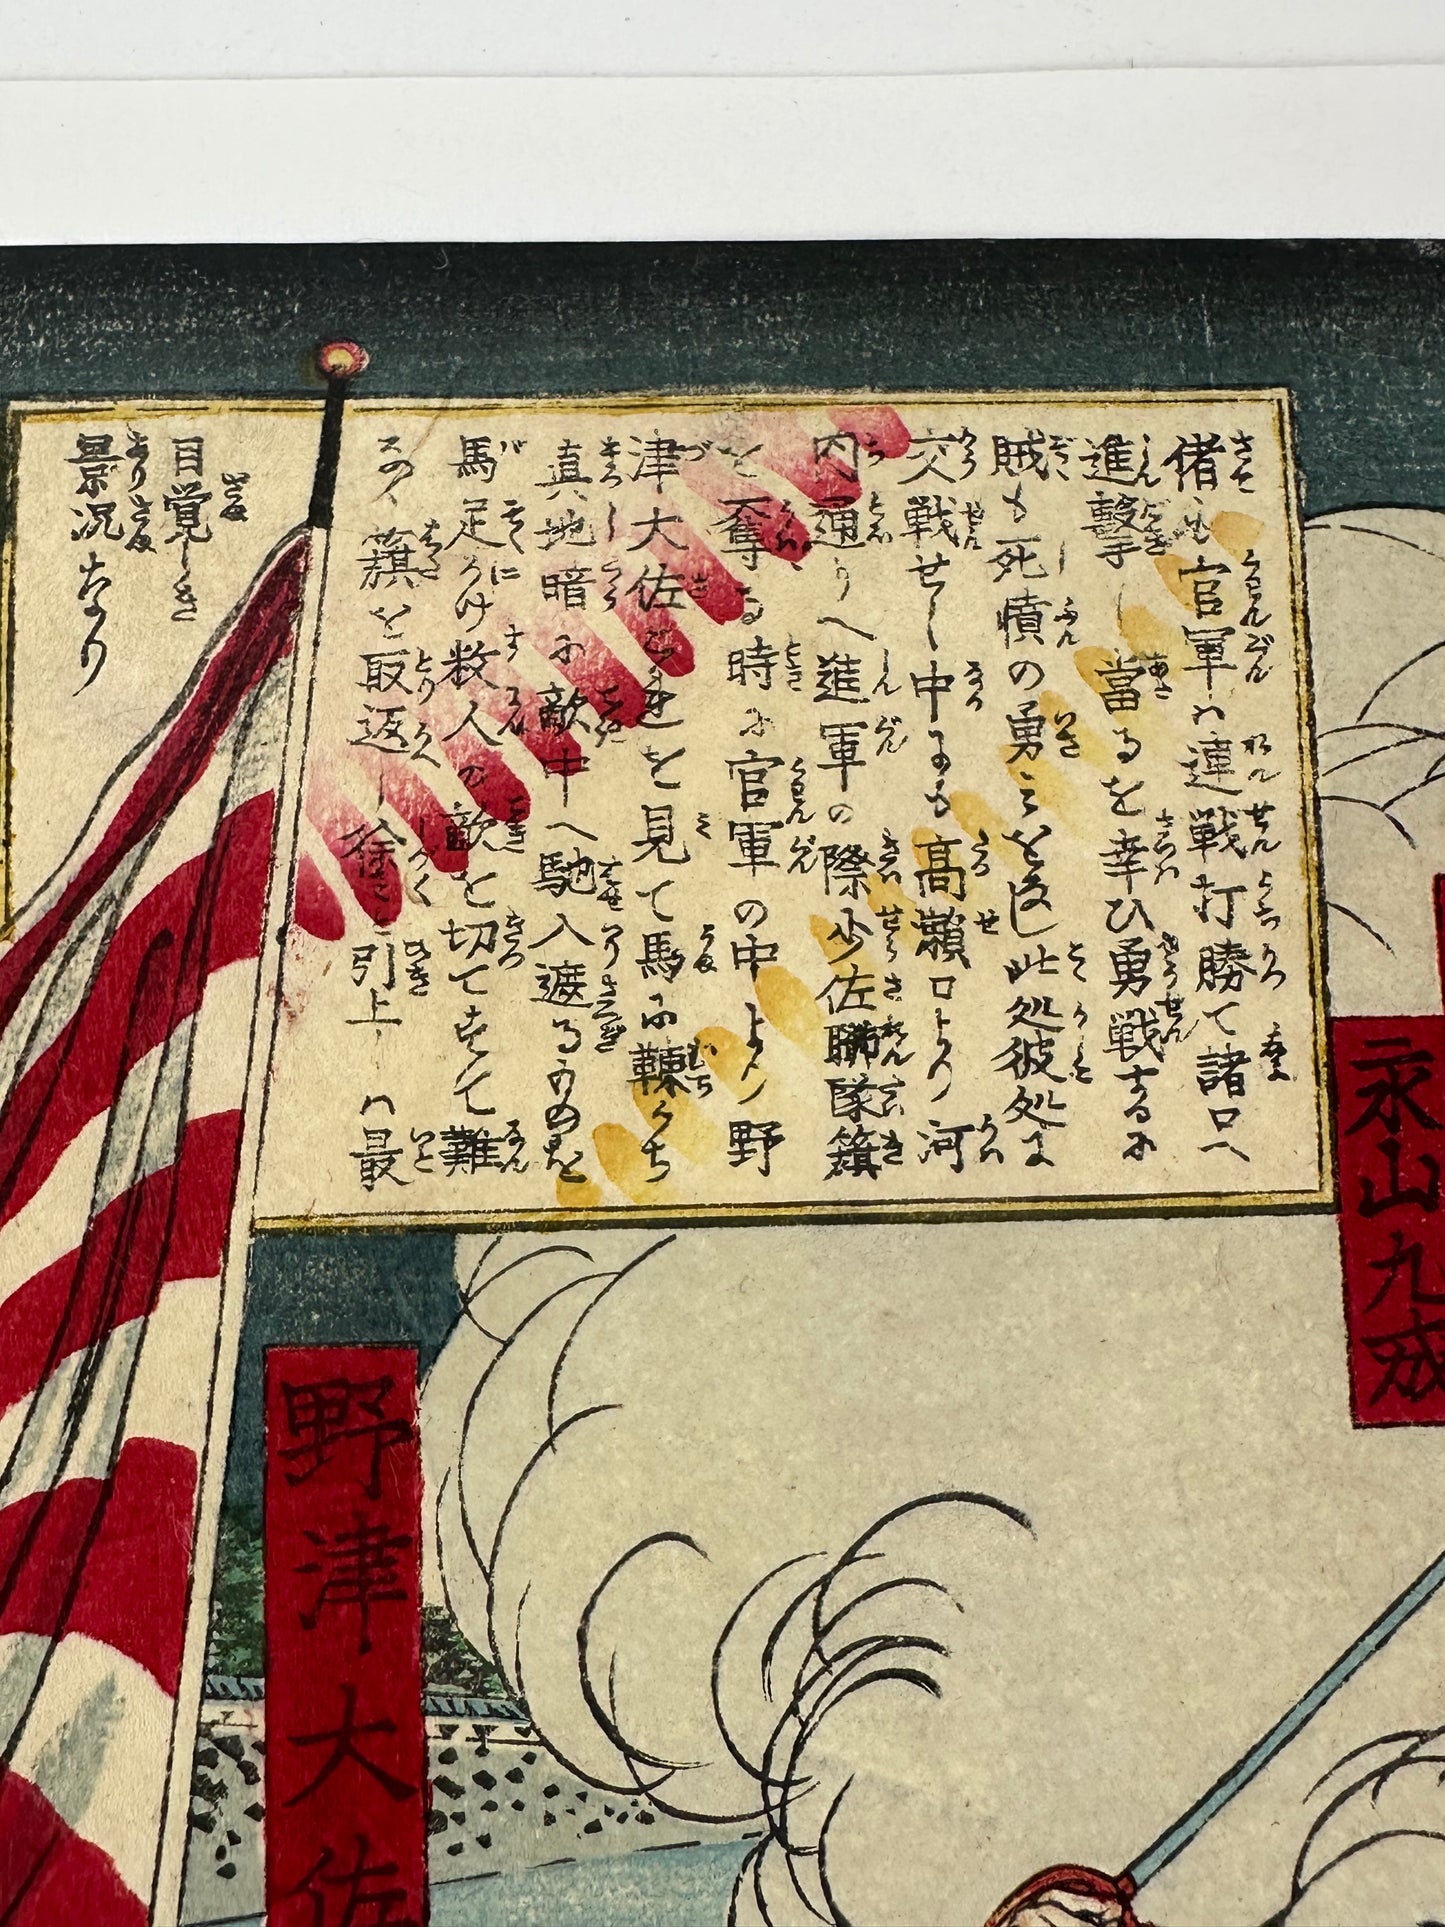 偖も官軍ハ連戦打勝て諸口へ
進撃し當るを幸ひ勇戦するに
賊も死憤の勇を 此処彼処に
交戦せし中にも高瀬口より河
内通りへ進軍の際少佐聯隊籏
を奪る時に官軍の中より野
津大佐 を見て馬に鞭うち
真地暗に敵中へ馳入遮るものを
馬足にかけ数人の敵を切て 難
なく籏を取返し徐々と引上しハ最
目覚しき
景况なり
永山九成
野津大佐